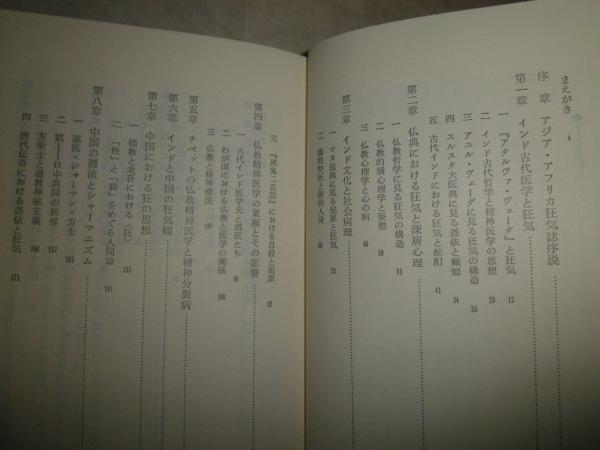 まえがき i
序章 アジア・アフリカ狂気誌序説
第一章 インド古代医学と狂気
一 『アタルヴァ・ヴェーダ』と狂気 13
二 インド古代哲学と精神医学の思想 20
三 アユル・ヴェーダに見る狂気の構造 26
四 スルスタ大医典に見る憑依と癲癇 34
五 古代インドにおける狂気と酩酊 41
第二章 仏典における狂気と深層心理
一 仏教哲学に見る狂気の構造 51
二 仏教的層心理学と妄想
三 仏教心理学と心の病 66
第三章 インド文化と社会病理
一 マヌ法典に見る犯罪と狂気 73
二 犠牲焚死と
三 『屍鬼二五話』における自殺と犯罪 87
第四章 仏教精神医学の東漸とその影響
一 古代インド医学史と僧医たち
二 わが国における仏教と医学の関係 100
三 仏教と精神療法
第五章 チベットの仏教精神医学と精神分裂病
第六章 インドと中国の狂気観
第七章 中国における狂の思想
一 儒教と老荘における〈狂〉 131
二 「性」と「修」をめぐる人間論 141
第八章 中国の憑依とシャーマニズム
一 巫医・シャーマン・方士 151
二 狐──日中共同の妖怪 157
三 方術士と道教神秘主義 164
四 唐代伝奇における憑依と狂気 171